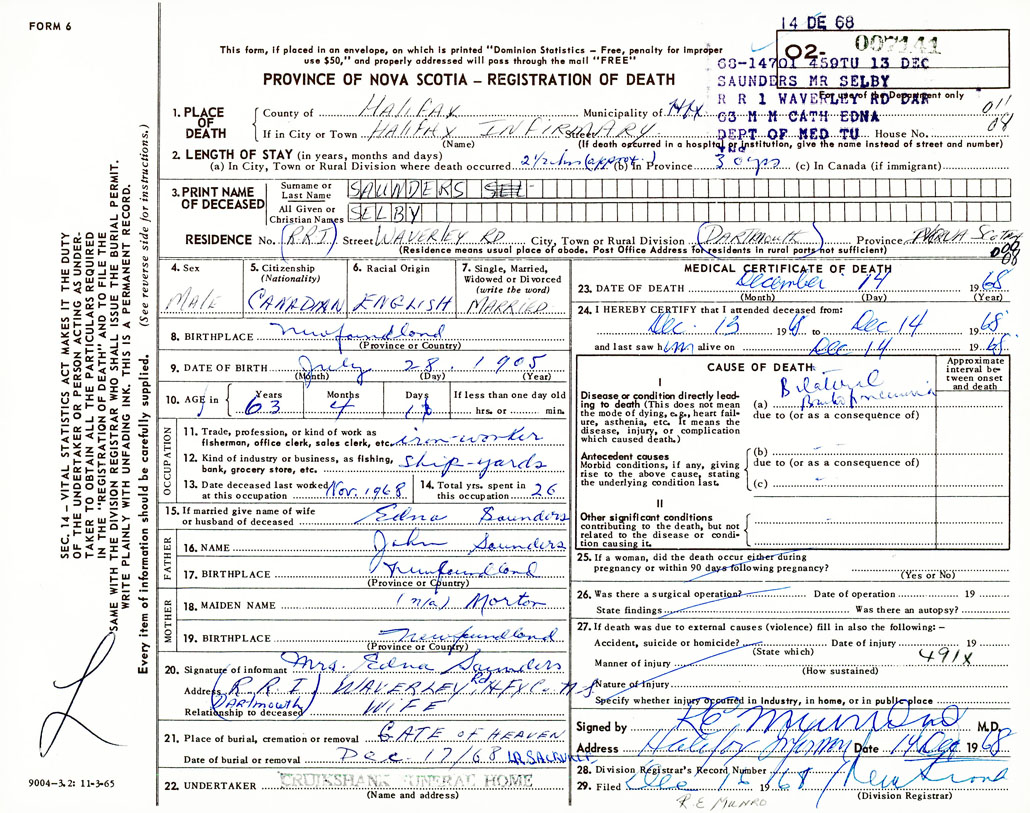 FORM 6
14 DE 68
02- 007141
This form, if placed in an envelope, on which is printed "Dominion Statistics – Free, penalty for improper
use $50," and properly addressed will pass through the mail "FREE"
68-14701 459TU 13 DEC
SAUNDERS MR SELBY
PROVINCE OF NOVA SCOTIA – REGISTRATION OF DEATH
For use of the Department only
R R 1 WAVERLEY RD DAR
63 M M CATH EDNA
DEPT OF MED TU
011
08
1. PLACE OF DEATH
County of HALIFAX Municipality of Hfx
If in City or Town HALIFAX INFIRMARY Street House No.
(Name) (If death occurred in a hospital or institution, give the name instead of street and number)
2. LENGTH OF STAY (in years, months and days)
(a) In City, Town or Rural Division where death occurred 2 1/2 hrs (approx.) (b) In Province 30 yrs (c) In Canada (if immigrant)
3. PRINT NAME OF DECEASED
Surname or Last Name SAUNDERS SEL
All Given or Christian Names SELBY
RESIDENCE No. (R.R.1) Street WAVERLEY RD City, Town or Rural Division (DARTMOUTH) Province NOVA SCOTIA
(Residence means usual place of abode. Post Office Address for residents in rural parts not sufficient)
4. Sex MALE
5. Citizenship (Nationality) CANADIAN
6. Racial Origin ENGLISH
7. Single, Married, Widowed or Divorced (write the word) MARRIED
8. BIRTHPLACE Newfoundland
(Province or Country)
9. DATE OF BIRTH July 28 1905
(Month) (Day) (Year)
10. AGE in Years 63 Months 4 Days If less than one day old hrs. or min.
OCCUPATION
11. Trade, profession, or kind of work as fisherman, office clerk, sales clerk, etc. iron-worker
12. Kind of industry or business, as fishing, bank, grocery store, etc. ship-yards
13. Date deceased last worked at this occupation Nov. 1968
14. Total yrs. spent in this occupation 26
15. If married give name of wife or husband of deceased Edna Saunders
FATHER
16. NAME John Saunders
17. BIRTHPLACE Newfoundland
(Province or Country)
MOTHER
18. MAIDEN NAME (n/a) Morton
19. BIRTHPLACE Newfoundland
(Province or Country)
20. Signature of informant Mrs. Edna Saunders
Address (R.R.1) WAVERLEY Rd HFX CO. N S
(DARTMOUTH)
Relationship to deceased WIFE
21. Place of burial, cremation or removal GATE OF HEAVEN
Date of burial or removal Dec. 17/68 LR. SACKVILLE
22. UNDERTAKER CRUIKSHANK FUNERAL HOME
(Name and address)
MEDICAL CERTIFICATE OF DEATH
23. DATE OF DEATH December 14 1968
(Month) (Day) (Year)
24. I HEREBY CERTIFY that I attended deceased from:
Dec. 13 1968 to Dec 14 1968
and last saw him alive on Dec 14 1968
CAUSE OF DEATH
Approximate interval between onset and death
I
Disease or condition directly leading to death (This does not mean the mode of dying, e.g., heart failure, asthenia, etc. It means the disease, injury, or complication which caused death.)
(a) Bilateral Bronchopneumonia
due to (or as a consequence of)
Antecedent causes
Morbid conditions, if any, giving rise to the above cause, stating the underlying condition last.
(b)
due to (or as a consequence of)
(c)
II
Other significant conditions
contributing to the death, but not related to the disease or condition causing it.
25. If a woman, did the death occur either during
pregnancy or within 90 days following pregnancy?
(Yes or No)
26. Was there a surgical operation? Date of operation 19
State findings Was there an autopsy?
27. If death was due to external causes (violence) fill in also the following: –
Accident, suicide or homicide? Date of injury 19
(State which)
491X
Manner of injury
(How sustained)
Nature of Injury
Specify whether injury occurred in Industry, in home, or in public place
Signed by R E Munro M.D.
Address Halifax Infirmary Date 14 Dec 1968
28. Division Registrar's Record Number
29. Filed Dec 16 1968
(Division Registrar)
R. E MUNRO
SEC. 14 – VITAL STATISTICS ACT MAKES IT THE DUTY
OF THE UNDERTAKER OR PERSON ACTING AS UNDER-
TAKER TO OBTAIN ALL THE PARTICULARS REQUIRED
IN THE "REGISTRATION OF DEATH" AND TO FILE THE
SAME WITH THE DIVISION REGISTRAR WHO SHALL ISSUE THE BURIAL PERMIT.
WRITE PLAINLY WITH UNFADING INK. THIS IS A PERMANENT RECORD.
Every item of information should be carefully supplied. (See reverse side for instructions.)
9004–3.2: 11-3-65